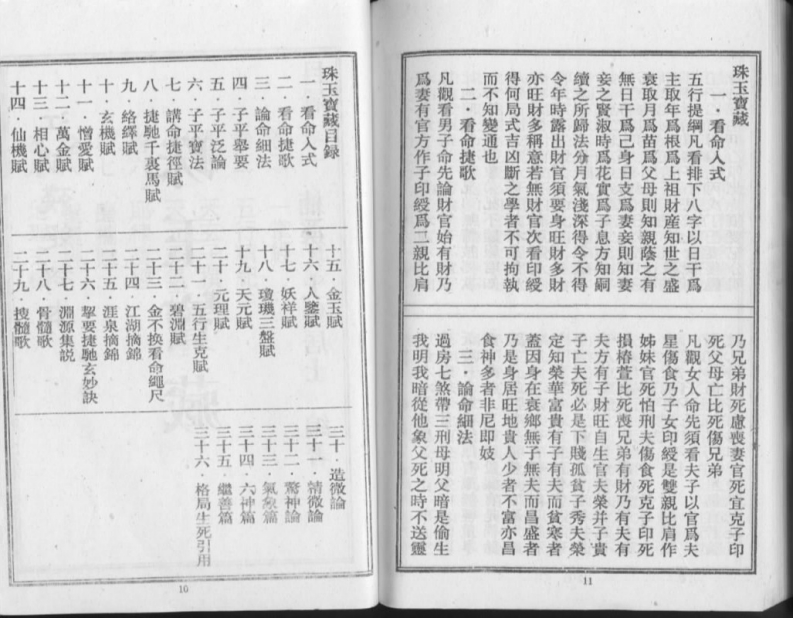 珠玉寶藏目録
一．看命入式
二．看命捷歌
三．論命細法
四．子平舉要
五．子平泛論
六．子平寶法
七．講命捷徑賦
八．捷馳千裏馬賦
九．絡繹賦
十．玄機賦
十一．憎愛賦
十二．萬金賦
十三．相心賦
十四．仙機賦
十五．金玉賦
十六．人鑒賦
十七．妖祥賦
十八．瓊璣三盤賦
十九．天元賦
二十．元理賦
二十一．五行生克賦
二十二．碧淵賦
二十三．金不换看命繩尺
二十四．江湖摘錦
二十五．涯泉摘錦
二十六．挈要捷馳玄妙訣
二十七．淵源集説
二十八．骨髓歌
二十九．搜髓歌
三十．造微論
三十一．精微論
三十二．驚神論
三十三．氣象篇
三十四．六神篇
三十五．繼善篇
三十六．格局生死引用
10
珠玉寶藏
一．看命入式
五行提綱凡看排下八字以日干爲
主取年爲根爲上祖財産知世之盛
衰取月爲苗爲父母則知親蔭之有
無日干爲己身日支爲妻妾則知妻
妾之賢淑時爲花實爲子息方知嗣
續之所歸法分月氣淺深得令不得
令年時露出財官須要身旺財多財
亦旺財多稱意若無財官次看印綬
得何局式吉凶斷之學者不可拘執
而不知變通也
二．看命捷歌
凡觀看男子命先論財官始有財乃
爲妻有官方作子印綬爲二親比肩
乃兄弟財死慮喪妻官死宜克子印
死父母亡比死傷兄弟
凡觀女人命先須看夫子以官爲夫
星傷食乃子女印綬是雙親比肩作
姊妹官死怕刑夫傷食死克子印死
損椿萱比死喪兄弟有財乃有夫有
夫方有子財旺自生官夫榮并子貴
子亡夫死必是下賤孤貧子秀夫榮
定知榮華富貴有子有夫而貧寒者
蓋因身在衰鄉無子無夫而昌盛者
乃是身居旺地貴人少者不富亦昌
食神多者非尼即妓
三．論命細法
過房七煞帶三刑母明父暗是偷生
我明我暗從他象父死之時不送靈
11